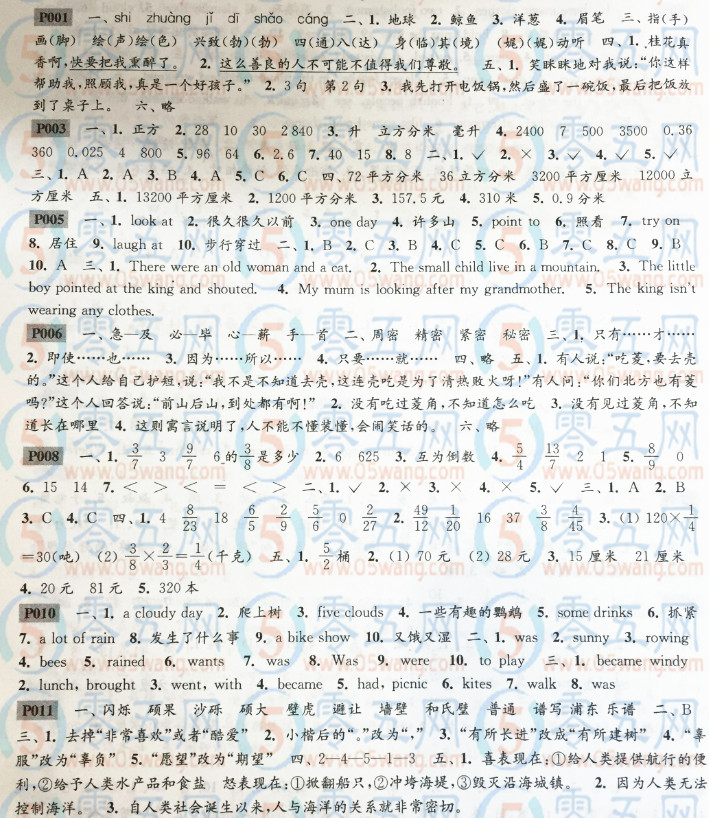 P001 一、shí zhuàng jǐ dī shǎo cáng 二、1. 地球 2. 鲸鱼 3. 洋葱 4. 眉笔 三、指(手)
画(脚) 绘(声)绘(色) 兴致(勃)(勃) 四(通)八(达) 身(临)其(境) (娓)(娓)动听 四、1. 桂花真
香啊,快要把我熏醉了。 2. 这么善良的人不可能不值得我们尊敬。 五、1. 笑眯眯地对我说:“你这样
帮助我,照顾我,真是一个好孩子。” 2. 3句 第2句 3. 我先打开电饭锅,然后盛了一碗饭,最后把饭放
到了桌子上。 六、略
P003 一、1. 正方 2. 28 10 30 2840 3. 升 立方分米 毫升 4. 2400 7 500 3500 0.36
360 0.025 4 800 5. 96 64 6. 2.6 7. 40 15 8. 8 二、1. ✓ 2. × 3. ✓ 4. ✓ 5. ✓
三、1. A 2. A 3. B 4. A 5. C 6. C 四、72平方分米 36立方分米 3200平方厘米 12000立
方厘米 五、1. 13200平方厘米 2. 1200平方分米 3. 157.5元 4. 310米 5. 0.9分米
P005 一、1. look at 2. 很久很久以前 3. one day 4. 许多山 5. point to 6. 照看 7. try on
8. 居住 9. laugh at 10. 步行穿过 二、1. B 2. C 3. B 4. C 5. C 6. B 7. C 8. C 9. B
10. A 三、1. There were an old woman and a cat. 2. The small child live in a mountain. 3. The little
boy pointed at the king and shouted. 4. My mum is looking after my grandmother. 5. The king isn't
wearing any clothes.
P006 一、急—及 必—毕 心—薪 手—首 二、周密 精密 紧密 秘密 三、1. 只有……才……
2. 即使……也…… 3. 因为……所以…… 4. 只要……就…… 四、略 五、1. 有人说:“吃菱,要去壳
的。”这个人给自己护短,说:“我不是不知道去壳,这连壳吃是为了清热败火呀!”有人问:“你们北方也有菱
吗?”这个人回答说:“前山后山,到处都有啊!” 2. 没有吃过菱角,不知道怎么吃 3. 没有见过菱角,不知
道长在哪里 4. 这则寓言说明了,人不能不懂装懂,会闹笑话的。 六、略
P008 一、1. 3/7 3 9/7 6的3/8是多少 2. 6 625 3. 互为倒数 4. 5/4 13/7 2 1 5. 8/9 0
6. 15 14 7. < > < = < > 二、1. ✓ 2. × 3. × 4. × 5. ✓ 三、1. A 2. B
3. C 4. C 四、1. 4 8/23 18 6/5 2/9 5/6 0 2/27 2. 49/12 1/20 16 37 3/8 4/45 3. (1) 120×1/4
=30(吨) (2) 3/8×2/3=1/4(千克) 五、1. 5/2桶 2. (1) 70元 (2) 28元 3. 15厘米 21厘米
4. 20元 81元 5. 320本
P010 一、1. a cloudy day 2. 爬上树 3. five clouds 4. 一些有趣的鹦鹉 5. some drinks 6. 抓紧
7. a lot of rain 8. 发生了什么事 9. a bike show 10. 又饿又湿 二、1. was 2. sunny 3. rowing
4. bees 5. rained 6. wants 7. was 8. Was 9. were 10. to play 三、1. became windy
2. lunch, brought 3. went, with 4. became 5. had, picnic 6. kites 7. walk 8. was
P011 一、闪烁 硕果 沙砾 硕大 壁虎 避让 墙壁 和氏璧 普通 谱写 浦东 乐谱 二、B
三、1. 去掉“非常喜欢”或者“酷爱” 2. 小楷后的“。”改为“,” 3. “有所长进”改成“有所建树” 4. “辜
服”改为“辜负” 5. “愿望”改为“期望” 四、2—4—5—1—3 五、1. 喜表现在:①给人类提供航行的便
利,②给予人类水产品和食盐 怒表现在:①掀翻船只,②冲垮海堤,③毁灭沿海城镇。 2. 因为人类无法
控制海洋。 3. 自人类社会诞生以来,人与海洋的关系就非常密切。